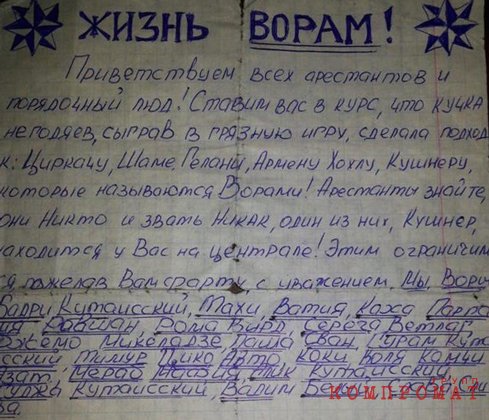 ЖИЗНЬ ВОРАМ!
Приветствуем всех арестантов и
порядочный люд! Ставим вас в курс, что кучка
негодяев, сыграв в грязную игру, сделала подход
к: Циркачу, Шаме, Гелани, Армену Хохлу, Кушнеру,
которые называются Ворами! Арестанты знайте,
они Никто и звать Никак, один из них, Кушнер,
находится у Вас на централе! Этим ограничим
ся пожелав Вам фарту, с уважением, Мы Воры
Кутаисский, Махи, Ватия, Каха
Равшан, Рома Серега Ветлаг
Джемо Микеладзе, Паша
Тимур Пико, Коки Коля Камчи
Мераб Кутаисский
Кутаисский, Вадим
КОМПРОМАТ
ГРУПП